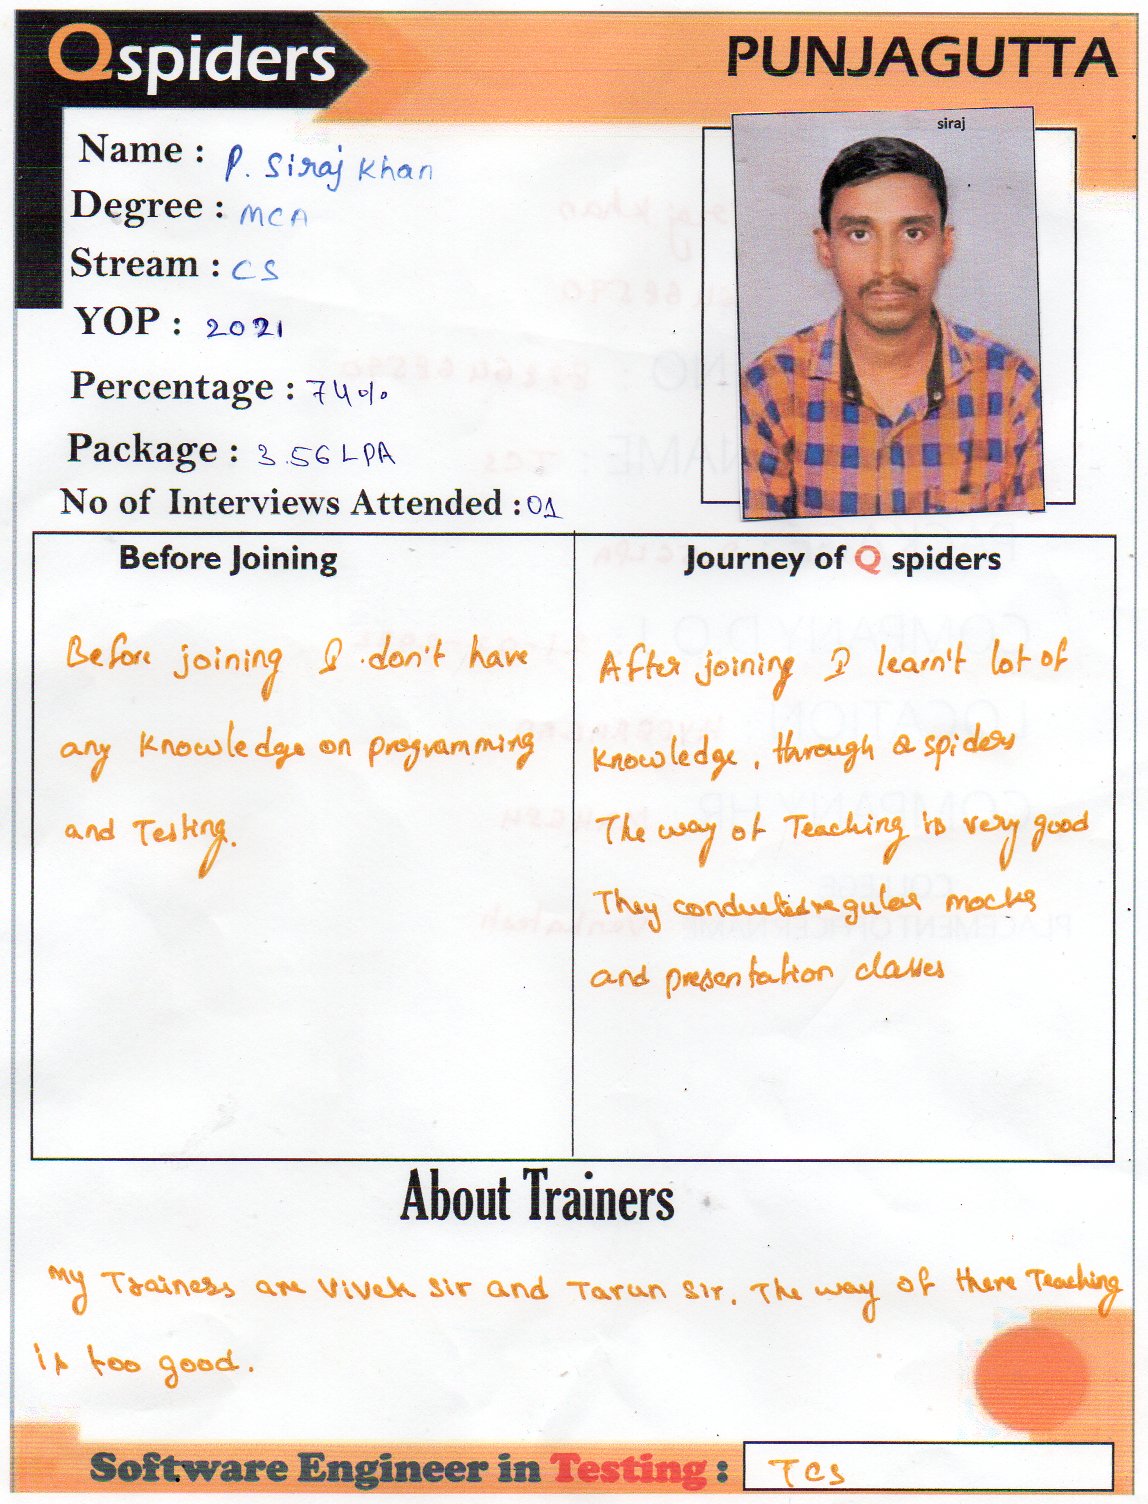 Qspiders
PUNJAGUTTA
siraj
Name : P. Siraj Khan
Degree : MCA
Stream : CS
YOP : 2021
Percentage : 74%
Package : 3.56 LPA
No of Interviews Attended : 01
Before Joining
Before joining I don't have
any knowledge on programming
and Testing.
Journey of Q spiders
After joining I learn't lot of
knowledge, through Q spiders
The way of Teaching is very good
They conducted regular mocks
and presentation classes
About Trainers
My Trainess are Vivek Sir and Tarun Sir. The way of there Teaching
is too good.
Software Engineer in Testing : TCS